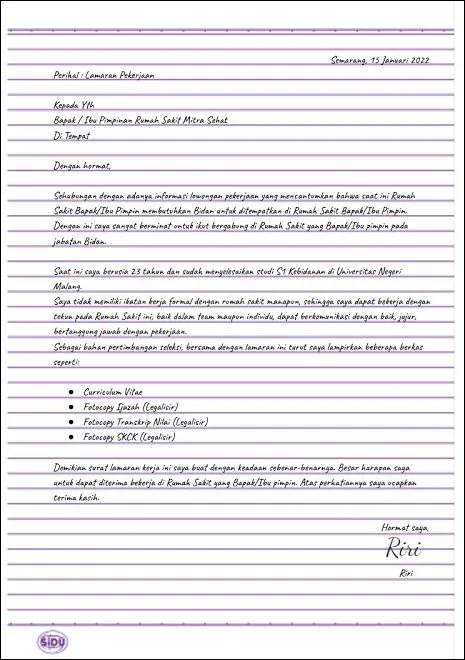 Semarang, 15 Januari 2022
Perihal : Lamaran Pekerjaan
Kepada Yth
Bapak / Ibu Pimpinan Rumah Sakit Mitra Sehat
Di Tempat
Dengan hormat,
Sehubungan dengan adanya informasi lowongan pekerjaan yang mencantumkan bahwa saat ini Rumah
Sakit Bapak/Ibu Pimpin membutuhkan Bidan untuk ditempatkan di Rumah Sakit Bapak/Ibu Pimpin.
Dengan ini saya sangat berminat untuk ikut bergabung di Rumah Sakit yang Bapak/Ibu pimpin pada
jabatan Bidan.
Saat ini saya berusia 23 tahun dan sudah menyelesaikan studi S1 Kebidanan di Universitas Negeri
Malang.
Saya tidak memiliki ikatan kerja formal dengan rumah sakit manapun, sehingga saya dapat bekerja dengan
tekun pada Rumah Sakit ini, baik dalam team maupun individu, dapat berkomunikasi dengan baik, jujur,
bertanggung jawab dengan pekerjaan.
Sebagai bahan pertimbangan seleksi, bersama dengan lamaran ini turut saya lampirkan beberapa berkas
seperti:
● Curriculum Vitae
● Fotocopy Ijazah (Legalisir)
● Fotocopy Transkrip Nilai (Legalisir)
● Fotocopy SKCK (Legalisir)
Demikian surat lamaran kerja ini saya buat dengan keadaan sebenar-benarnya. Besar harapan saya
untuk dapat diterima bekerja di Rumah Sakit yang Bapak/Ibu pimpin. Atas perhatiannya saya ucapkan
terima kasih.
Hormat saya,
Riri
Riri
SIDU